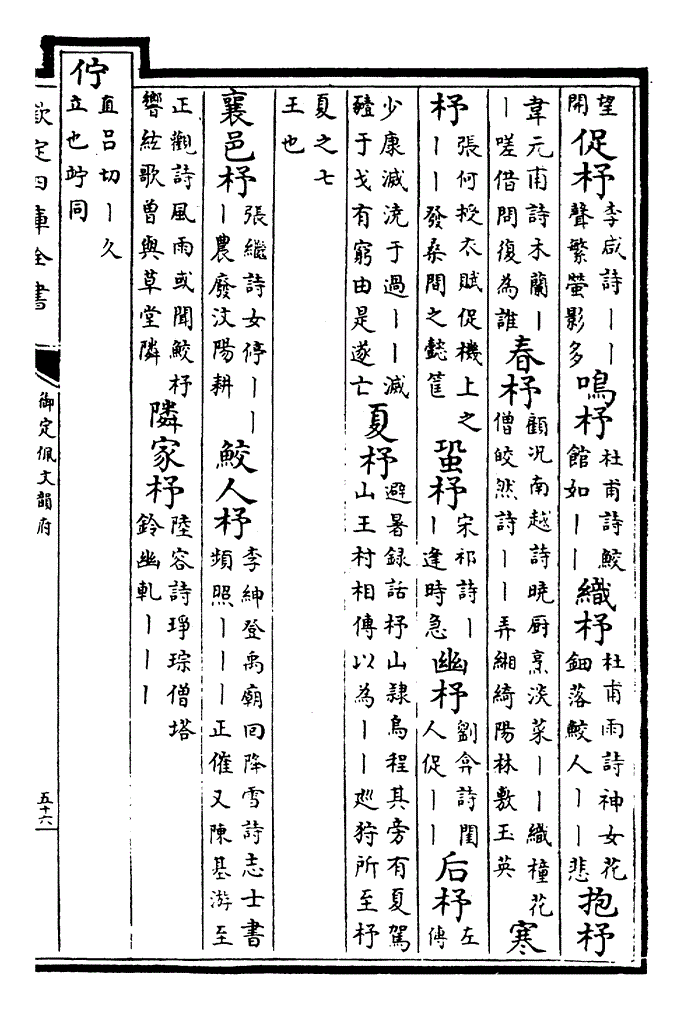 望開 促杼 李咸詩丨丨聲繁螢影多 鳴杼 杜甫詩鮫館如丨丨 織杼 杜甫雨詩神女花鈿落鮫人丨丨悲 抱杼
韋元甫詩木蘭丨丨嗟借問復為誰 春杼 顧况南越詩曉厨烹淡菜丨丨織橦花僧皎然詩丨丨弄緗綺陽林敷玉英 寒
杼 張何授衣賦促機上之丨丨發桑間之懿筐 蛩杼 宋祁詩丨丨逢時急 幽杼 劉弇詩閨人促丨丨 后杼 左傳
少康滅澆于過丨丨滅豷于戈有窮由是遂亡 夏杼 避暑録話杼山隷烏程其旁有夏駕山王村相傳以為丨丨廵狩所至杼
夏之七王也
襄邑杼 張繼詩女停丨丨丨農廢汶陽耕 鮫人杼 李紳登禹廟回降雪詩志士書頻照丨丨丨正催又陳基游至
正觀詩風雨或聞鮫杼響絃歌曽與草堂隣 隣家杼 陸容詩琤琮僧塔鈴幽軋丨丨丨
佇 直吕切丨久立也竚同
欽定四庫全書
御定佩文韻府
五十六